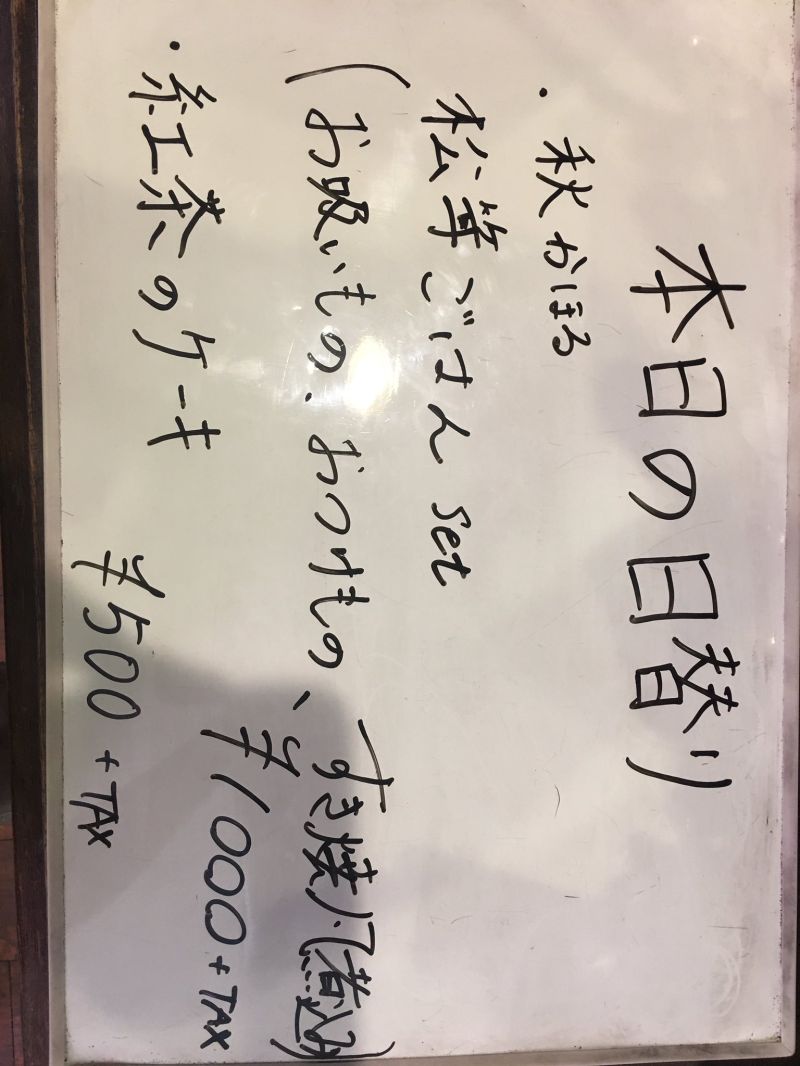 本日の日替り
・秋かほる
松茸ごはん set
(お吸いもの、おつけもの、すき焼ノ煮込み)
¥1000+TAX
・紅茶のケーキ
¥500+TAX